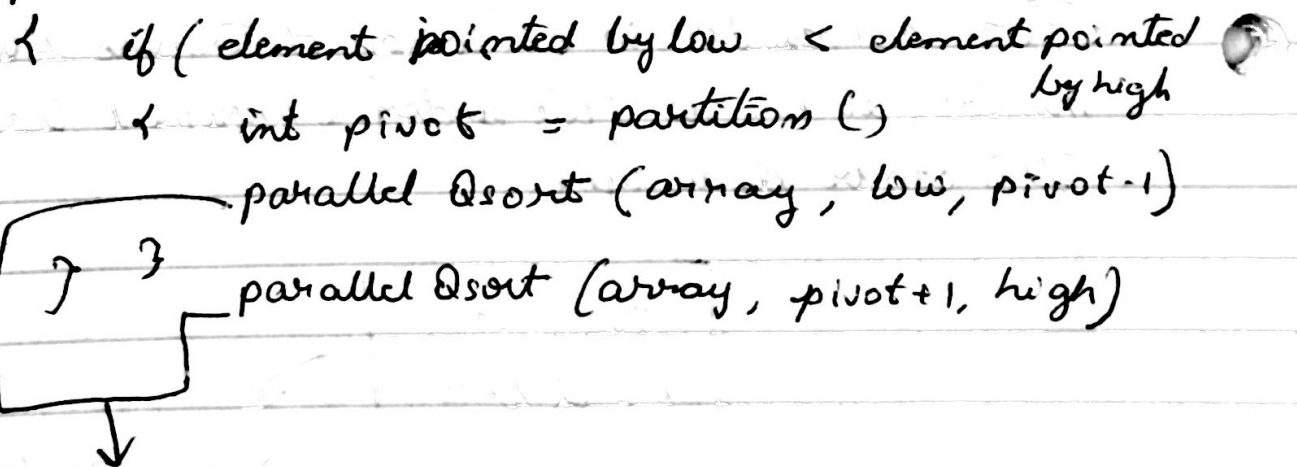 { if ( element pointed by low < element pointed
by high
{ int pivot = partition ()
parallel Qsort (array, low, pivot-1)
} }
parallel Qsort (array, pivot+1, high)